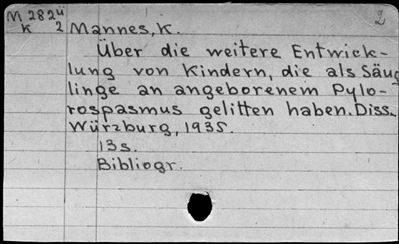 M 282ü 2
K 2 Mannes, K.
Über die weitere Entwick-
lung von Kindern, die als Säug
linge an angeborenem Pylo-
rospasmus gelitten haben. Diss.
Würzburg, 1935.
13s.
Bibliogr.